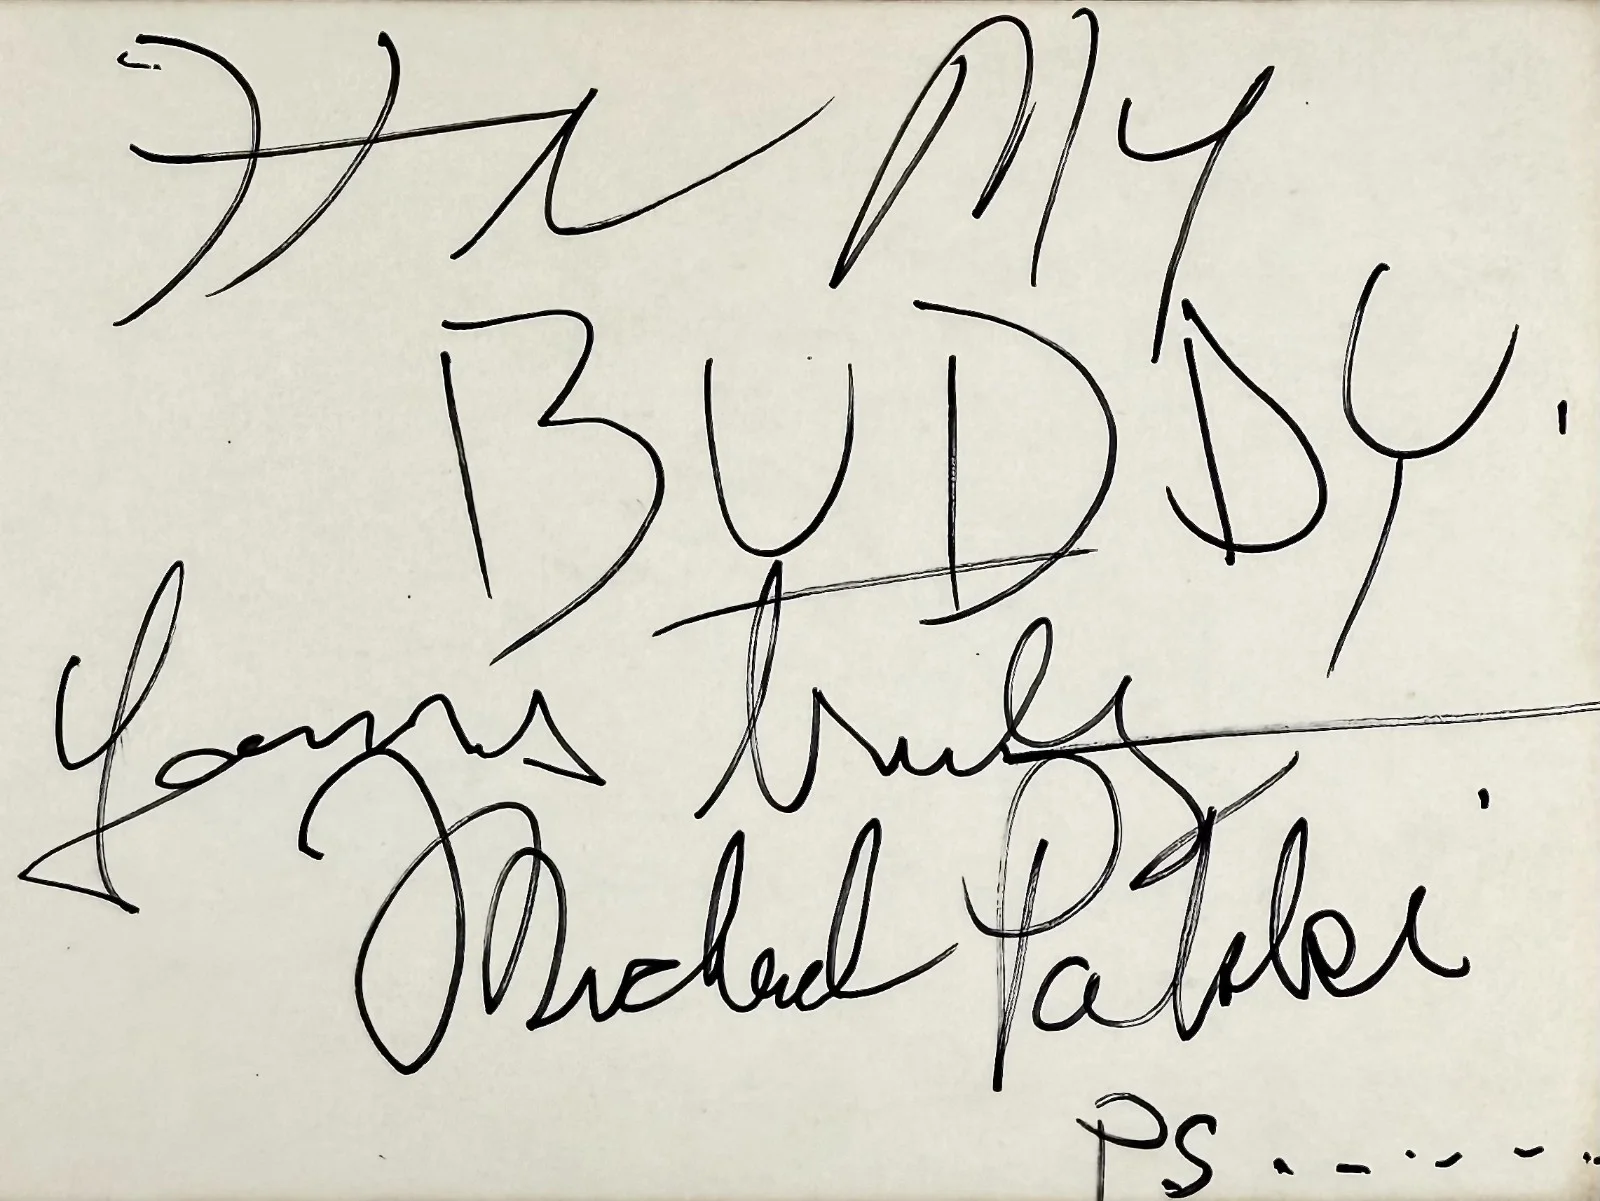 Hi My
BUDDY.
Yours truly
Michael Pataki
PS.......